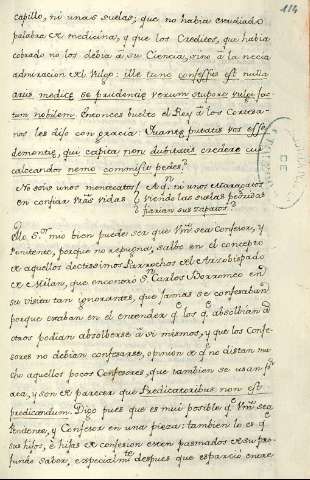 114
capillo, ni unas suelas; que no havia estudiado
palabra de medicina, y que los Creditos, que havia
cobrado no los debia â su Ciencia, sino â la necia
admiracion del Vulgo: ille tunc confessus est nulla
artis medicæ se prudentia verum stupore vulgi fac-
tum nobilem. Entonces buelto el Rey â los Cortesa-
nos les dijo con gracia: Quantæ putatis vos esse
dementiæ, qui capita non dubitatis credere cui
calceandos nemo commissit pedes?
No sois unos mentecatos
en confiar vras vidas
â qn. ni unos Maragatos
viendo las suelas podridas
fiarian sus zapatos?
Mo Sr. mio bien puede ser que Vm. sea Confesor, y
Penitente, porque no repugna, salbo en el concepto
de aquellos doctissimos Parrochos del Arzobispado
de Milan, que encontró Sn. Carlos Borromeo en
su visita tan ignorantes, que jamas se confesaban
porque estaban en el entender qe. los qe. absolbian â
otros podian absolberse â si mismos, y que los Confe-
sores no debian confesarse, opinion de qe. no distan mu-
cho aquellos pocos Confesores, que tambien se usan pr.
acá, y son de parecer que Predicatoribus non est
predicandum. Digo pues que es mui posible qe. Vm. sea
Penitente, y Confesor en una pieza: tambien lo es qe.
sus hijos, è hijas de confesion esten pasmados de su pro-
fundo saber, especialmte. despues que esparció entre